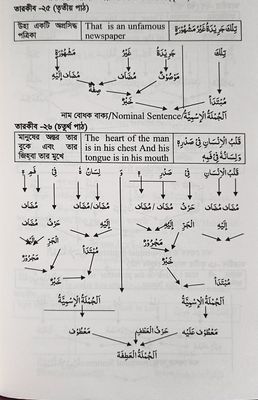 তারকীব -২৫ (তৃতীয় পাঠ)
উহা একটি অপ্রসিদ্ধ পত্রিকা
That is an unfamous newspaper
تِلْكَ جَرِيْدَةٌ غَيْرُ مَشْهُوْرَةٍ
تِلْكَ جَرِيْدَةٌ غَيْرُ مَشْهُوْرَةٍ
مَوْصُوْفٌ مُضَافٌ مُضَافٌ إِلَيْهِ
صِفَةٌ
مُبْتَدَأٌ خَبَرٌ
নাম বোধক বাক্য/Nominal Sentence/اَلْجُمْلَةُ الْإِسْمِيَّةُ
তারকীব -২৬ (চতুর্থ পাঠ)
মানুষের অন্তর তার বুকে এবং তার জিহ্বা তার মুখে
The heart of the man is in his chest And his tongue is in his mouth
قَلْبُ الْإِنْسَانِ فِيْ صَدْرِهِ وَلِسَانُهُ فِيْ فَمِهِ
قَلْبُ الْإِنْسَانِ فِيْ صَدْرِ هِ وَ لِسَانُ هُ فِيْ فَمِ هِ
مُضَافٌ مُضَافٌ إِلَيْهِ حَرْفُ الْجَرِّ مُضَافٌ مُضَافٌ إِلَيْهِ مُضَافٌ مُضَافٌ إِلَيْهِ حَرْفُ الْجَرِّ مُضَافٌ مُضَافٌ إِلَيْهِ
مَجْرُوْرٌ مُبْتَدَأٌ مَجْرُوْرٌ
مُبْتَدَأٌ خَبَرٌ خَبَرٌ
اَلْجُمْلَةُ الْإِسْمِيَّةُ اَلْجُمْلَةُ الْإِسْمِيَّةُ
مَعْطُوْفٌ عَلَيْهِ حَرْفُ الْعَطْفِ مَعْطُوْفٌ
اَلْجُمْلَةُ الْعَطِفَةُ